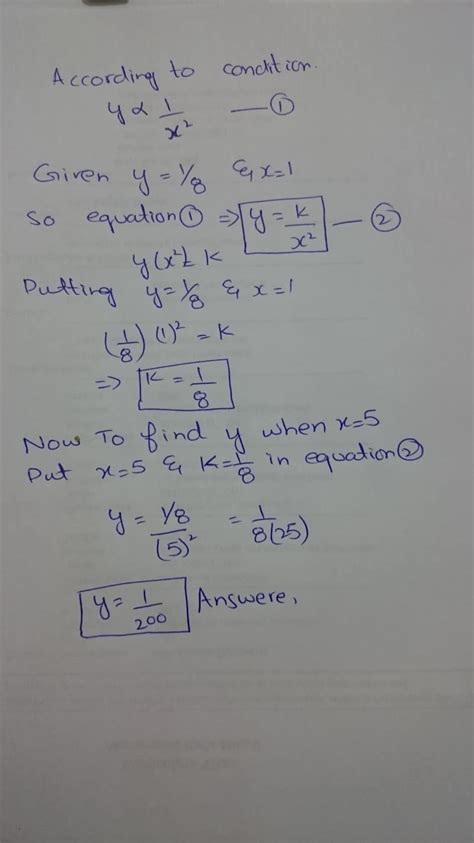 According to condition.
y ∝ 1/x² — ①
Given y = 1/8 & x=1
So equation ① ⇒ y = k/x² — ②
y(x²) = k
Putting y = 1/8 & x = 1
(1/8) (1)² = k
⇒ k = 1/8
Now To find y when x=5
Put x=5 & k=1/8 in equation ②
y = 1/8/(5)² = 1/8(25)
y = 1/200 Answere,